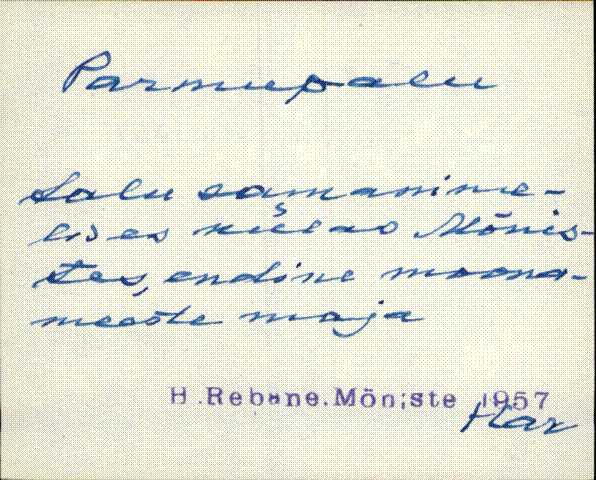 Parmupalu
Salu samanime-
lises külas Mõnis-
tes, endine moona-
meeste maja
H.Rebane.Mõniste 1957
Har